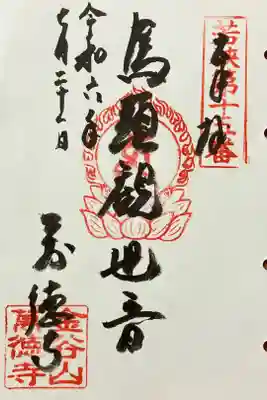 奉拝
若狭第十三番
馬頭観世音
萬徳寺
金谷山
萬徳寺
令和六年
七月二十一日